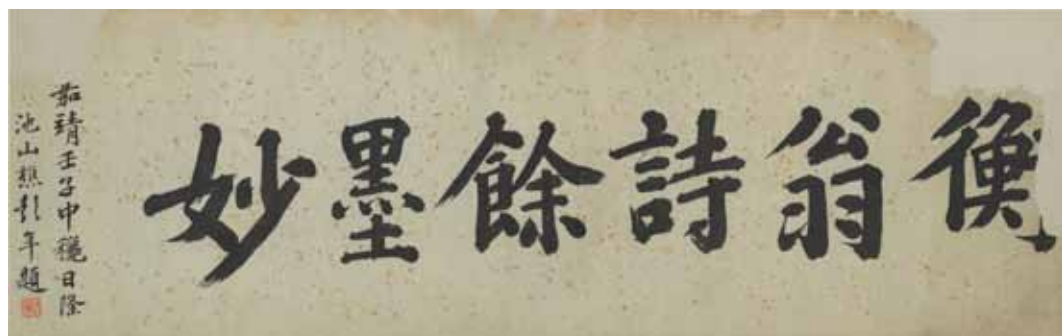 衡翁詩餘墨妙
嘉靖壬子中龝日隆
池山樵彭年題